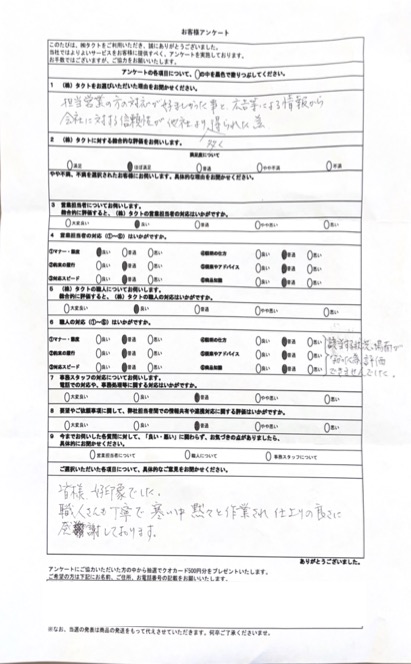 お客様アンケート
このたびは、㈱タクトをご利用いただき、誠にありがとうございました。
当社ではよりよいサービスをお客様に提供すべく、アンケートを実施しております。
お手数ではございますが、ご協力をお願いいたします。
アンケートの各項目について、○の中を黒色で塗りつぶしてください。
1 (株)タクトをお選びいただいた理由をお聞かせください。
担当営業の方の対応が好ましかった事と、広告等による情報から
会社に対する信頼性が他社より多く得られた為
2 (株)タクトに対する総合的な評価をお伺いします。
満足度について
満足 ほぼ満足 普通 やや不満 不満
やや不満、不満を選択されたお客様にお伺いします。具体的な理由をお聞かせください。
3 営業担当者についてお伺いします。
総合的に評価すると、(株)タクトの営業担当者の対応はいかがですか。
大変良い 良い 普通 やや悪い 悪い
4 営業担当者の対応(①~⑥)はいかがですか。
①マナー・態度 良い 普通 悪い ④説明の仕方 良い 普通 悪い
②約束の履行 良い 普通 悪い ⑤提案やアドバイス 良い 普通 悪い
③対応スピード 良い 普通 悪い ⑥商品知識 良い 普通 悪い
5 (株)タクトの職人についてお伺いします。
総合的に評価すると、(株)タクトの職人の対応はいかがですか。
大変良い 良い 普通 やや悪い 悪い
6 職人の対応(①~⑥)はいかがですか。
①マナー・態度 良い 普通 悪い ④説明の仕方 良い 普通 悪い
②約束の履行 良い 普通 悪い ⑤提案やアドバイス 良い 普通 悪い
③対応スピード 良い 普通 悪い ⑥商品知識 良い 普通 悪い
該当する状況、場面が
なかった為、評価
できませんでした。
7 事務スタッフの対応についてお伺いします。
電話での対応や、事務処理等に関する対応はいかがですか。
大変良い 良い 普通 やや悪い 悪い
8 要望やご依頼事項に関して、弊社担当者間での情報共有や連携対応に関する評価はいかがですか。
大変良い 良い 普通 やや悪い 悪い
9 今までお伺いした各質問に対して、「良い・悪い」に関わらず、お気づきの点がありましたら、
具体的にお聞かせください。
営業担当者について 職人について 事務スタッフについて
ご選択いただいた各項目について、具体的なご意見をお聞かせください。
皆様、好印象でした。
職人さんも丁寧で寒い中黙々と作業され仕上りの良さに
感謝しております。
ありがとうございました。
アンケートにご協力いただいた方の中から抽選でクオカード500円分をプレゼントいたします。
ご希望の方は下記にお名前、ご住所、お電話番号の記載をお願いいたします。
※なお、当選の発表は商品の発送をもって代えさせていただきます。何卒ご了承くださいませ。